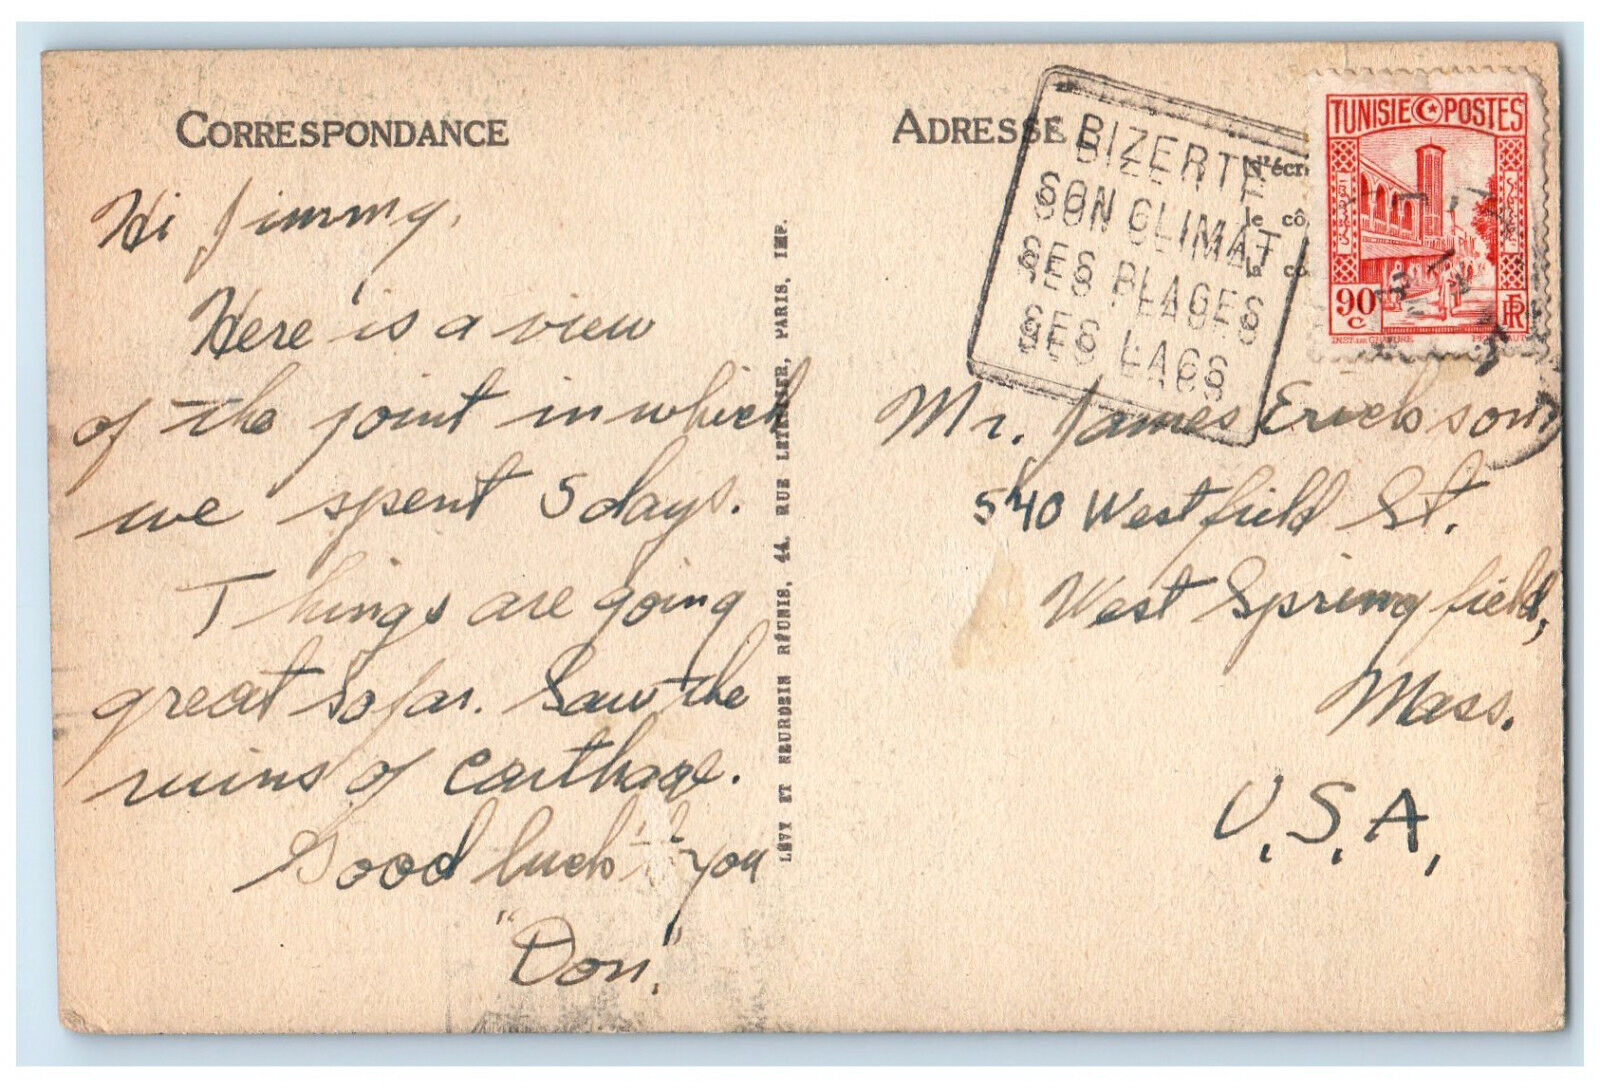 CORRESPONDANCE
Hi Jimmy,
Here is a view
of the joint in which
we spent 5 days.
Things are going
great so far. Saw the
ruins of Carthage.
Good luck to you
"Don"
LÉVY ET NEURDEIN RÉUNIS, 44, RUE LETELLIER, PARIS, IMP.
ADRESSE
N'écri
le cô
la co
BIZERTE
SON CLIMAT
SES PLAGES
SES LACS
TUNISIE POSTES
90
C
RF
INST. DE GRAVURE
Mr. James Erickson
540 Westfield St.
West Springfield,
Mass.
U.S.A.